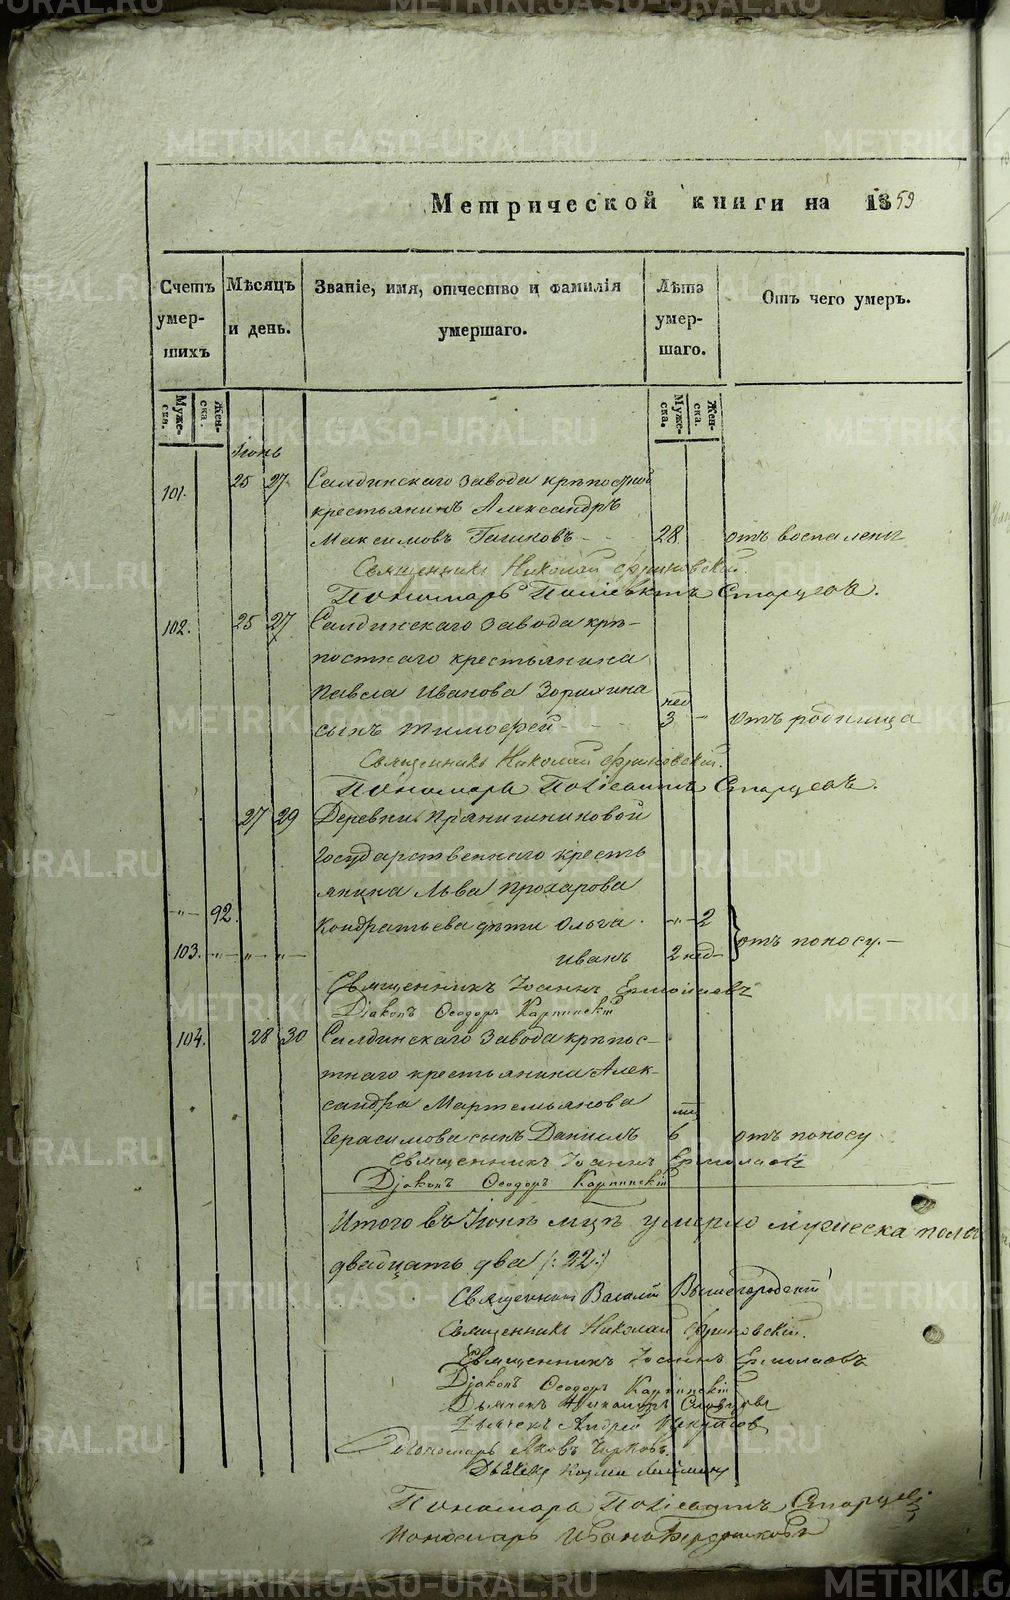 Метрической книги на 1859
Счетъ умершихъ
Мѣсяцъ и день.
Званіе, имя, отчество и фамилія умершаго.
Лѣта умершаго.
Отъ чего умеръ.
Мужеска. Женска.
Мужеска. Женска.
Іюнь
101. 25 27 Салдинскаго завода крѣпостной
крестьянинъ Александръ
Максимовъ 28 отъ воспаленія
Священникъ Николай
Пономарь Поліевктъ Старцевъ.
102. 25 27 Салдинскаго завода крѣ-
постнаго крестьянина
Павла Иванова Зорихина нед
сынъ Тимофей 3 " отъ родимца
Священникъ Николай
Пономарь Поліевктъ Старцевъ.
27 29 Деревни Прянишниковой
Государственнаго кресть
янина Льва Прохарова
-"- 92. Кондратьева дѣти Ольга -"- 2
103. -"- -"- -"- Иванъ 2 нед отъ поносу.-
Священникъ Іоаннъ Ермолаевъ
Діаконъ Ѳеодоръ Карпинскій
104. 28 30 Салдинскаго завода крѣпос-
тнаго крестьянина Алек-
сандра Мартемьянова
Герасимова сынъ Даніилъ 6 отъ поносу
Священникъ Іоаннъ Ермолаевъ
Діаконъ Ѳеодоръ Карпинскій
Итого въ Іюнѣ мцѣ умерло мужеска пола
двадцать два /:22:/
Священникъ Василій Вышегородскій
Священникъ Николай
Священникъ Іоаннъ Ермолаевъ
Діаконъ Ѳеодоръ Карпинскій
Дьячекъ Никаноръ Словцовъ
Дьячекъ Андрей Некрасов
Пономарь Яковъ Чирковъ.
Дьячекъ Козма
Пономарь Поліевктъ Старцевъ
Пономарь Иванъ Бердниковъ
METRIKI.GASO-URAL.RU